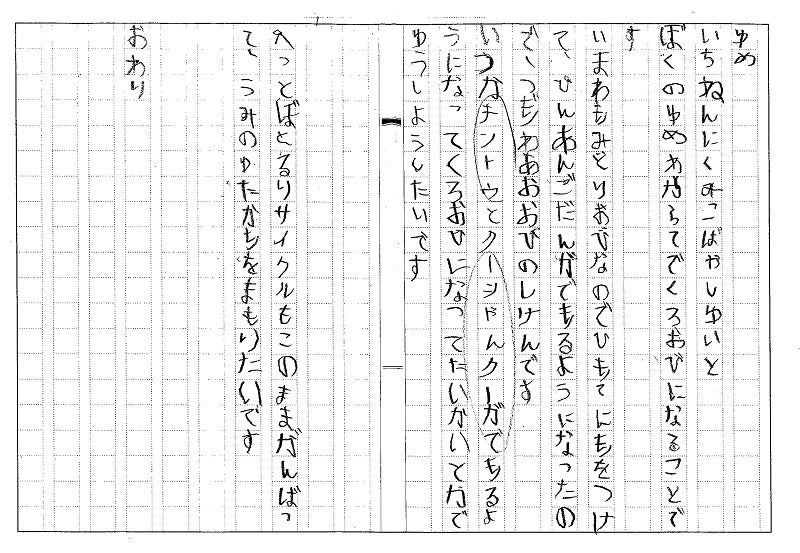 ゆめ
いちねんにくみこばやしゆいと
ぼくのゆめわからてでくろおびになることで
す
いまわもみどりおびなのでひもてにちをつけ
て、ぴんあんごだんができるようになったの
で、つぎわあおおびのしけんです
いつなチントウとクーシャンクーができるよ
うになってくろおびになってたいかいとかで
ゆうしょうしたいです
ぺっとぼとるりサイクルもこのままがんばっ
て、うみのゆたかちをまもりたいです
おわり